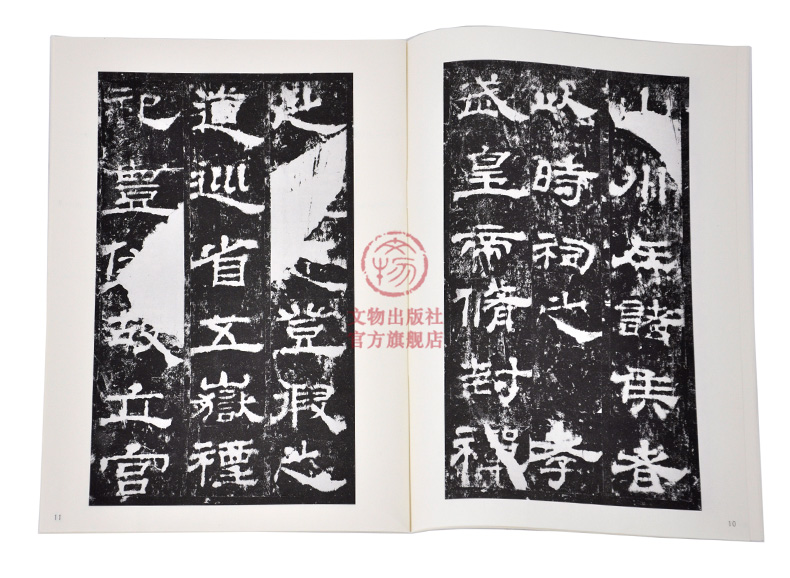 山川在諸侯者
以時祠之孝
武皇帝脩封禪
之登徦之
道巡省五嶽禋
祀豐備故立宮
10
11
文物
文物出版社
官方旗舰店